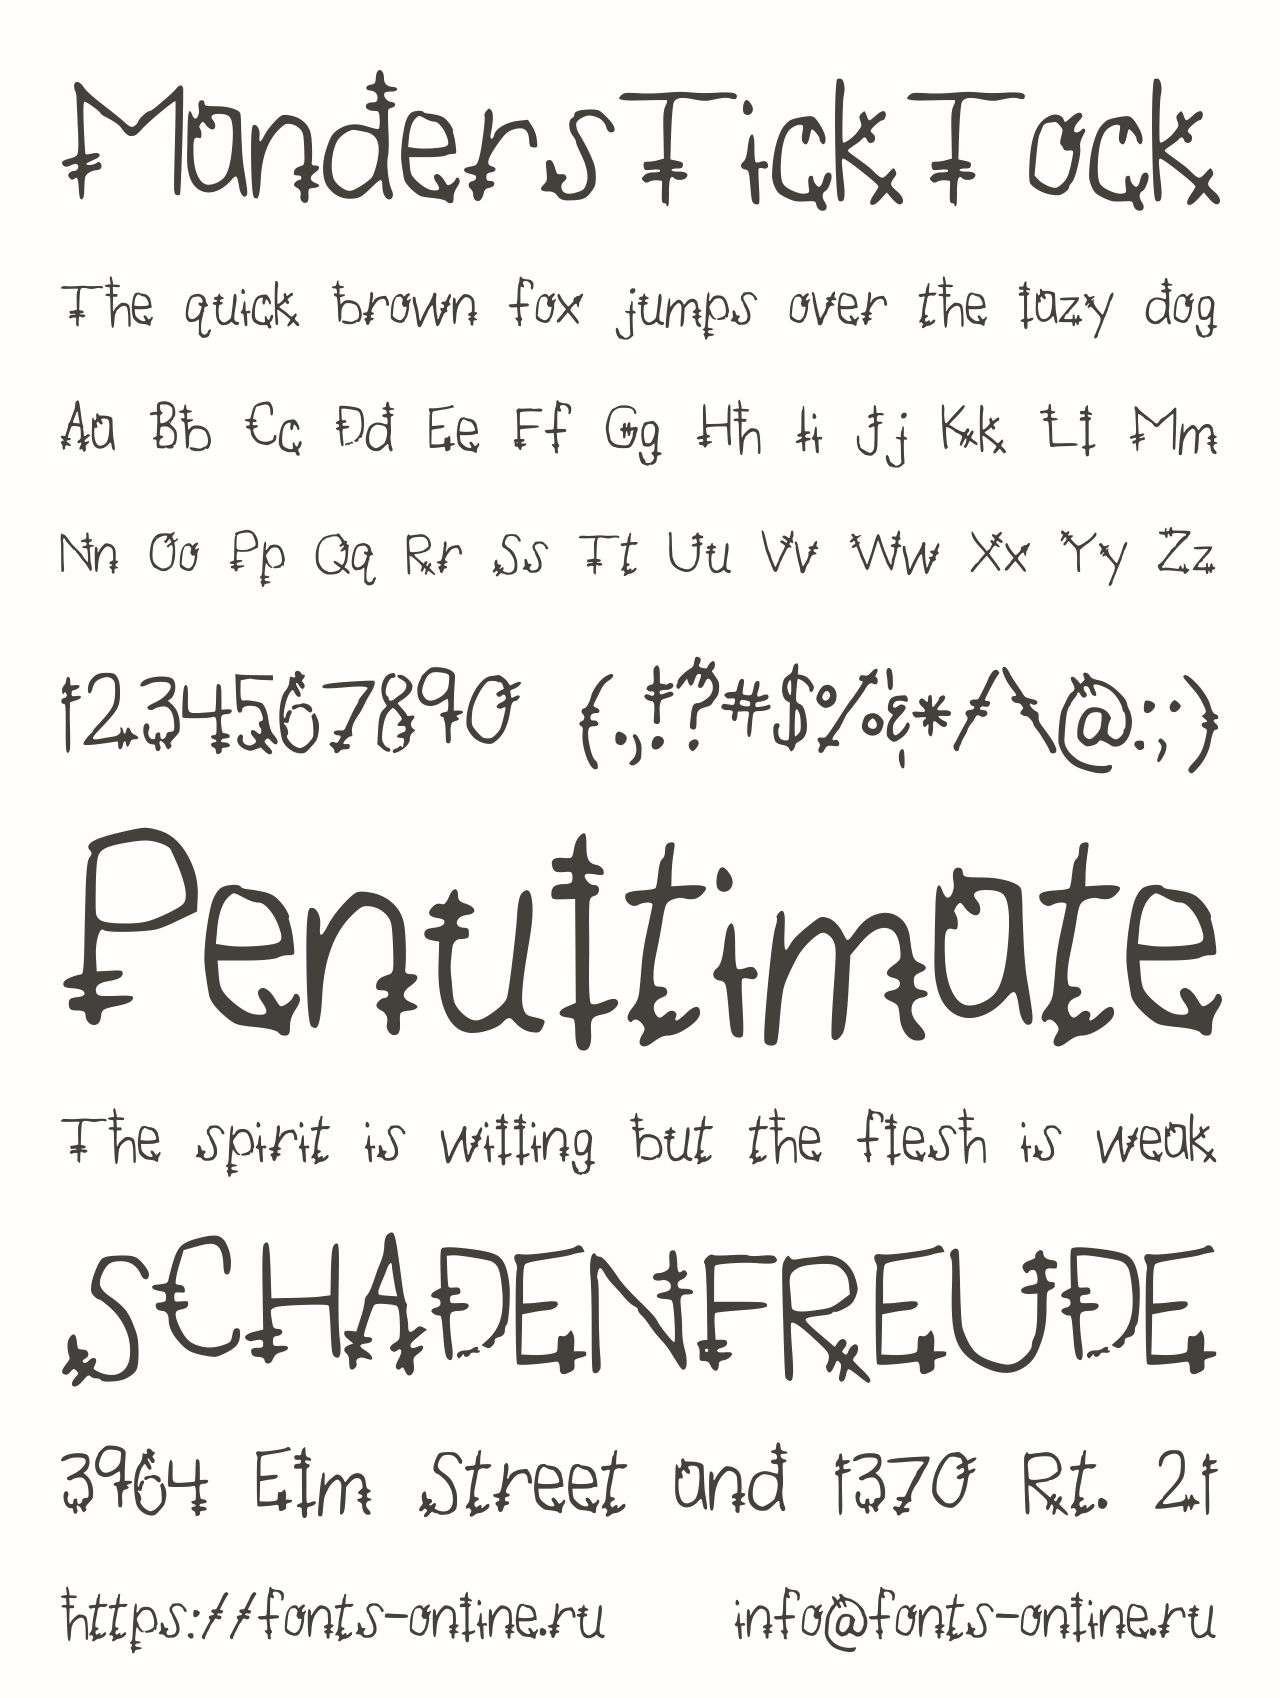 MandersTickTock
The quick brown fox jumps over the lazy dog
Aa Bb Cc Dd Ee Ff Gg Hh Ii Jj Kk Ll Mm
Nn Oo Pp Qq Rr Ss Tt Uu Vv Ww Xx Yy Zz
1234567890 (.,!?#$%&*/\@:;)
Penultimate
The spirit is willing but the flesh is weak
SCHADENFREUDE
3964 Elm Street and 1370 Rt. 21
https://fonts-online.ru info@fonts-online.ru